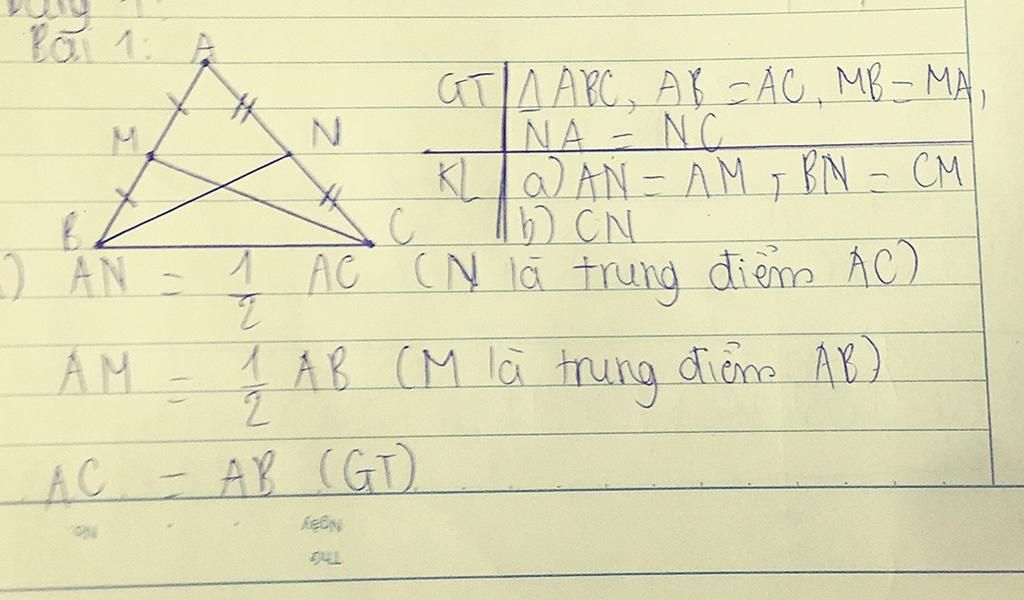 Bài 1:
A
M
N
B
C
GT | ΔABC, AB = AC, MB = MA,
NA = NC
KL | a) AN = AM, BN = CM
b) CN
) AN = 1/2 AC (N là trung điểm AC)
AM = 1/2 AB (M là trung điểm AB)
AC = AB (GT)
No.
Ngày
Thứ